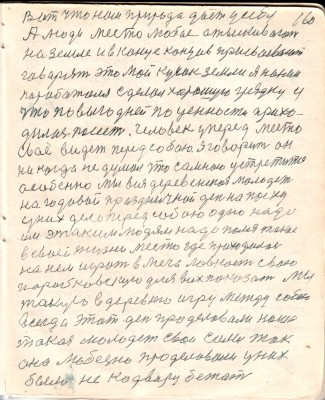 Вот что нам природа даёт у себу 160
А люди место тобае отыскивают
на земле и в конце концов присваевают
говарят это мой кусок земли я на нем
паработал сделал хорошую грядку у
что по выгодней по ценности прихо-
дилас посеет. Человек уперед место
своё видет перед собою я говорит он
ни когда не думал что самною устретится
особенно мы вся деревенская молодеж
на годовой праздничной ден на
у них дело перед собою одно надо
им этаким людям надо помятание
в своей жизни место где проходили
на нем играт в мяга ловкост свою
паробковскую для всех показат мы
такую в деревни игру между собою
всегда этот ден проделовали наша
такая молодеж свои сили так
она любезно проделовали у них
было не кадвару бежат